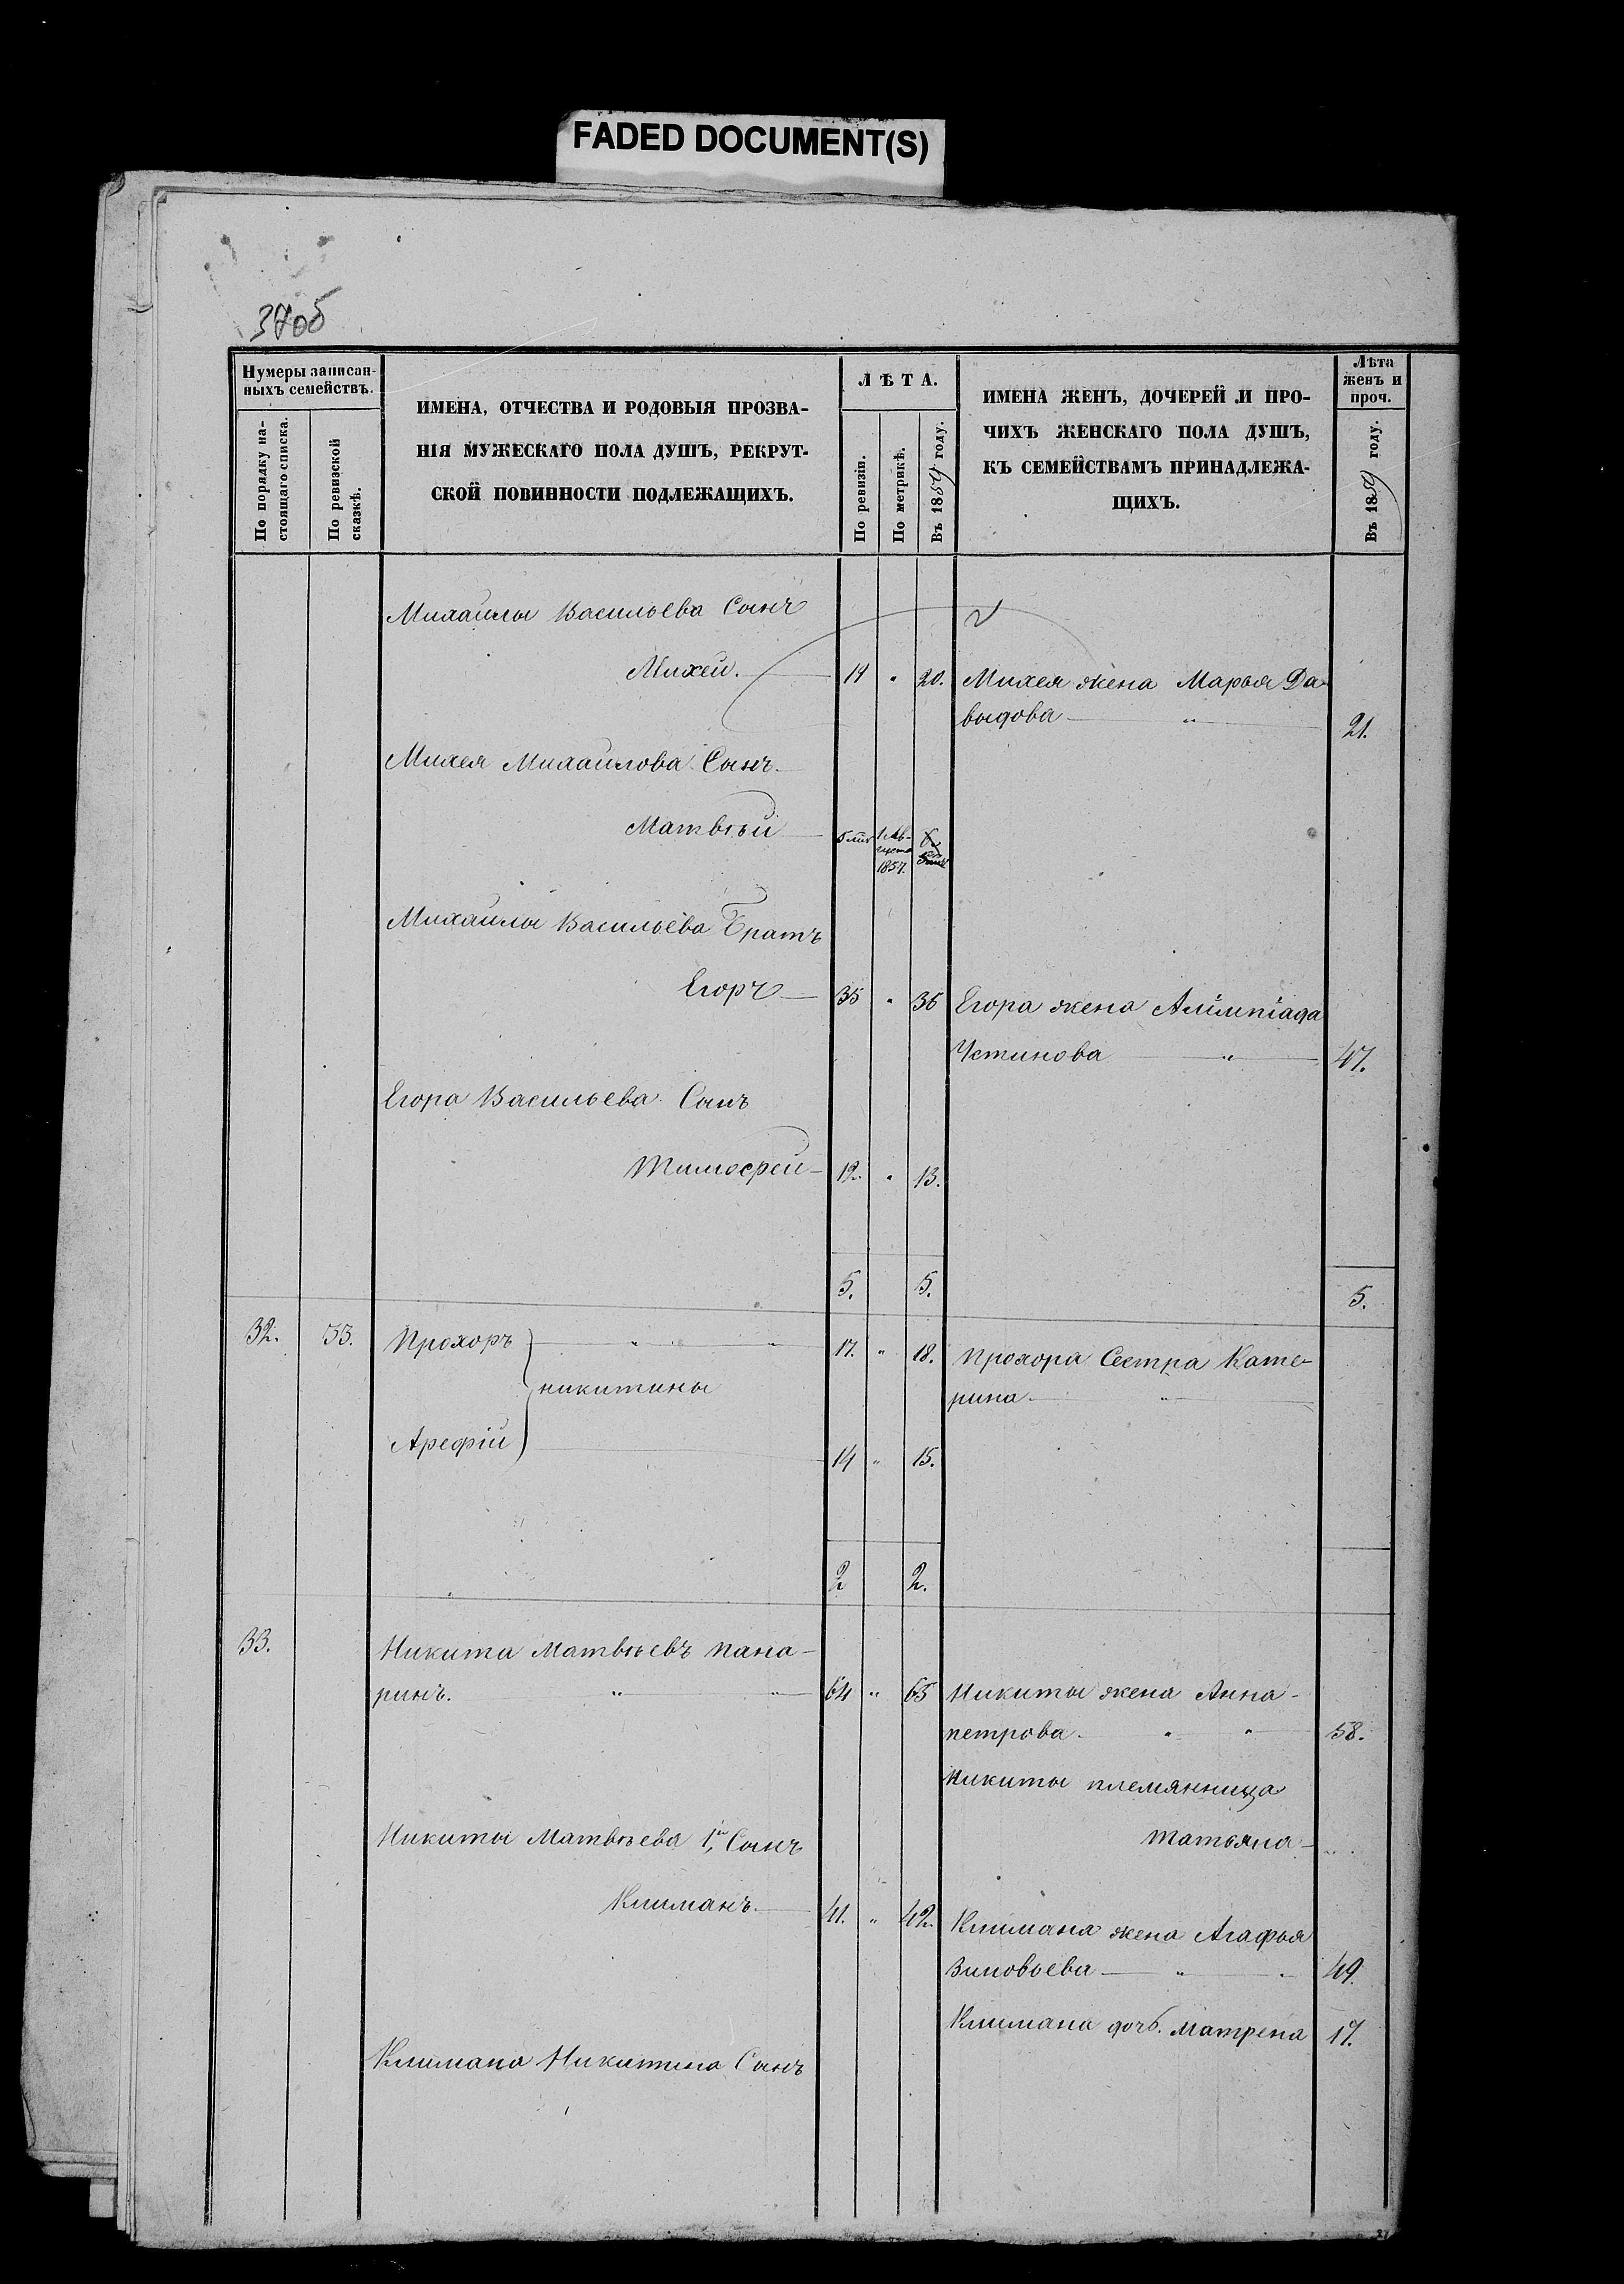 FADED DOCUMENT(S)
370об
Нумеры записан-
ныхъ семействъ.
По порядку на-
стоящаго списка.
По ревизской
сказкѣ.
ИМЕНА, ОТЧЕСТВА И РОДОВЫЯ ПРОЗВА-
НІЯ МУЖЕСКАГО ПОЛА ДУШЪ, РЕКРУТ-
СКОЙ ПОВИННОСТИ ПОДЛЕЖАЩИХЪ.
ЛѢТА.
По ревизіи.
По метрикѣ.
Въ 1859 году.
ИМЕНА ЖЕНЪ, ДОЧЕРЕЙ И ПРО-
ЧИХЪ ЖЕНСКАГО ПОЛА ДУШЪ,
КЪ СЕМЕЙСТВАМЪ ПРИНАДЛЕЖА-
ЩИХЪ.
Лѣта
женъ и
проч.
Въ 1859 году.
Михайлы Васильева Сынъ
Михей. 19 " 20. Михея жена Марья Да-
выдова " 21.
Михея Михайлова Сынъ
Матвѣй
1 Ав-
густа
1857.
Михайлы Васильева Братъ
Егоръ 35 " 36 Егора жена Алимпіада
Устинова " 47.
Егора Васильева Сынъ
Тимофей 12. " 13.
5. 5. 5.
32. 33. Прохоръ " " 17. " 18. Прохора Сестра Кате-
никитины рина "
Арефій 14 " 15.
2 2.
33. Никита Матвѣевъ пана-
ринъ. " " 64 " 65 Никиты жена Анна
петрова. " " 58.
Никиты племянница
Никиты Матвѣева 1й Сынъ Татьяна
Климанъ. 41. " 42. Климана жена Агафья
Зиновьева " " 49.
Климана дочь. Матрена 17.
Климана Никитина Сынъ